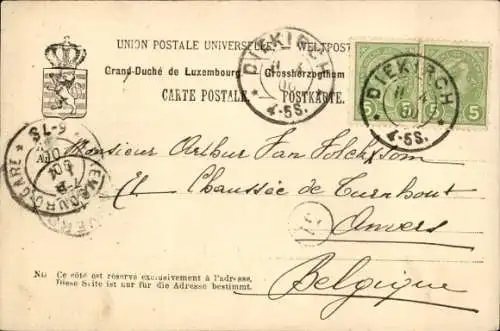 UNION POSTALE UNIVERSELLE. — WELTPOST
Grand-Duché de Luxembourg Grossherzogthum
CARTE POSTALE. POSTKARTE.
DIEKIRCH
4-5S.
DIEKIRCH
4-5S.
5 5 5
6-7S
LUXEMBOURG-GARE
Monsieur Arthur Van
Chaussée de Turnhout
Anvers
Belgique
NB Ce côté est réservé exclusivement à l'adresse.
Diese Seite ist nur für die Adresse bestimmt.